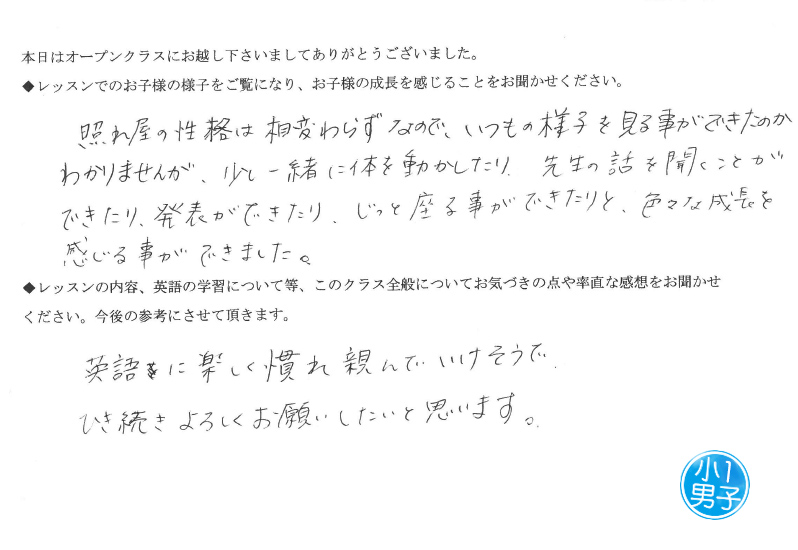 本日はオープンクラスにお越し下さいましてありがとうございました。
◆レッスンでのお子様の様子をご覧になり、お子様の成長を感じることをお聞かせください。
照れ屋の性格は相変わらずなので、いつもの様子を見る事ができたのか
わかりませんが、少し一緒に体を動かしたり、先生の話を聞くことが
できたり、発表ができたり、じっと座る事ができたりと、色々な成長を
感じる事ができました。
◆レッスンの内容、英語の学習について等、このクラス全般についてお気づきの点や率直な感想をお聞かせ
ください。今後の参考にさせて頂きます。
英語に楽しく慣れ親んでいけそうで、
ひき続きよろしくお願いしたいと思います。
小1
男子